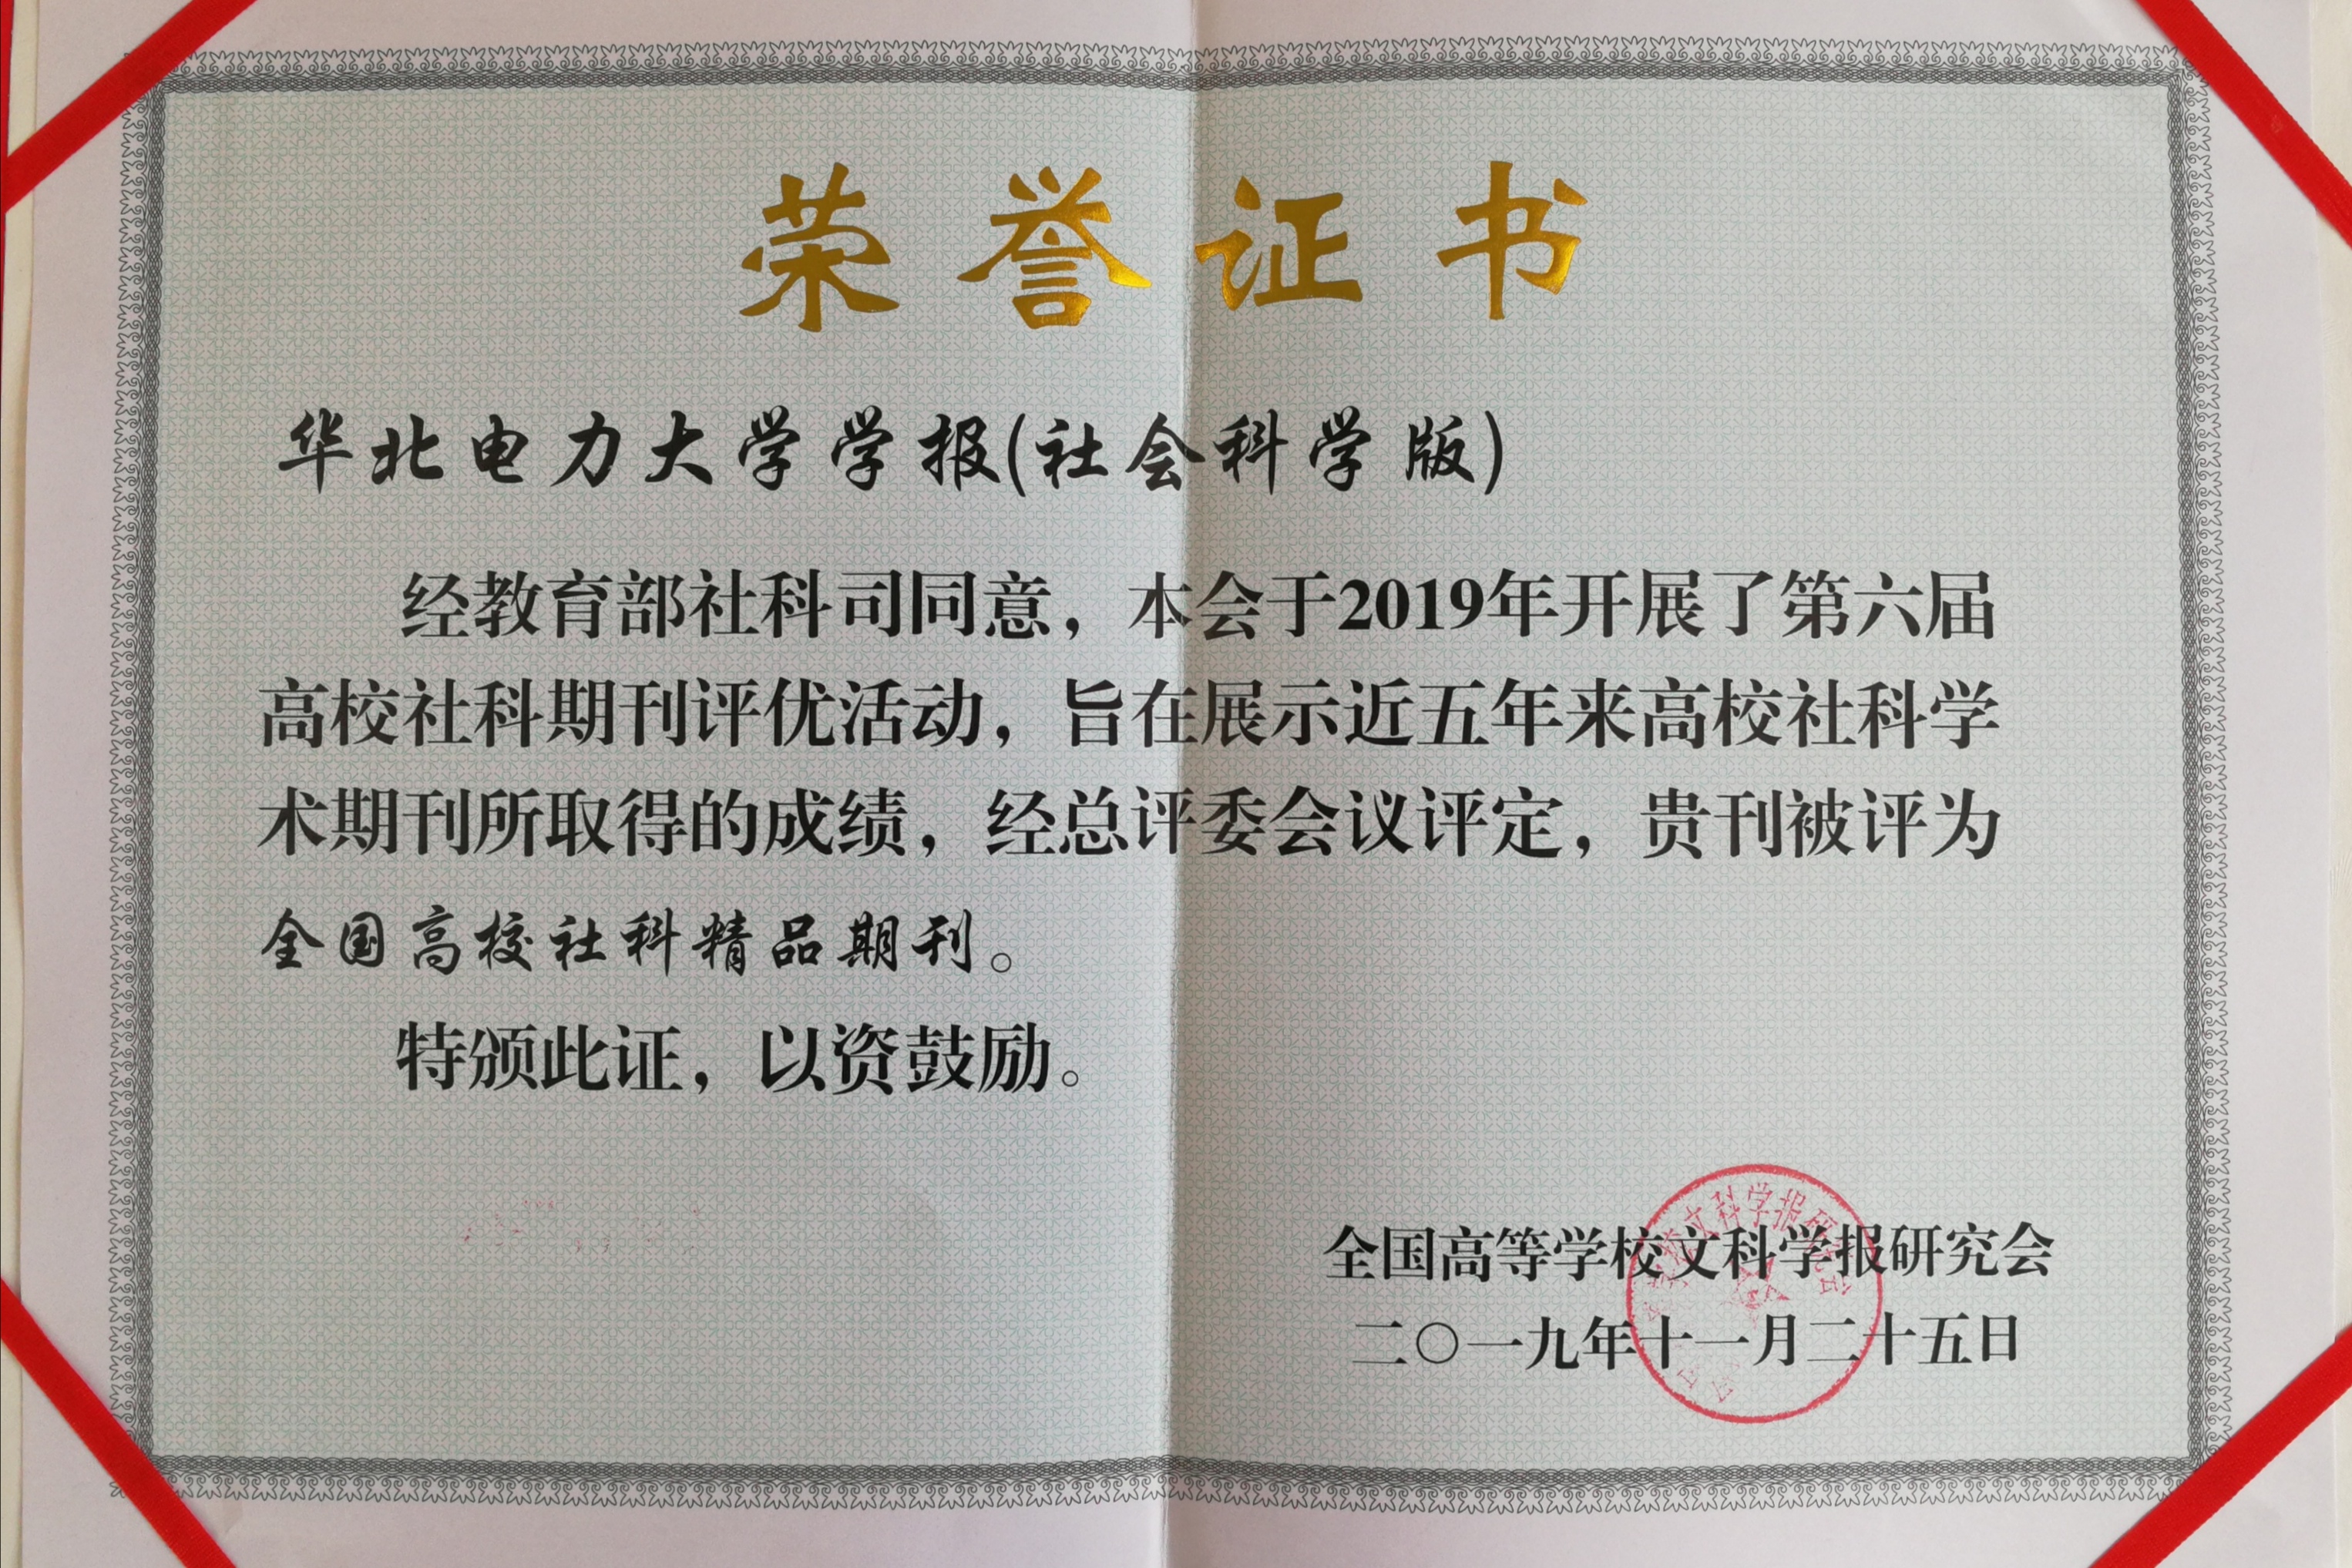 荣誉证书
华北电力大学学报(社会科学版)
经教育部社科司同意，本会于2019年开展了第六届
高校社科期刊评优活动，旨在展示近五年来高校社科学
术期刊所取得的成绩，经总评委会议评定，贵刊被评为
全国高校社科精品期刊。
特颁此证，以资鼓励。
全国高等学校文科学报研究会
二〇一九年十一月二十五日
文科学报研